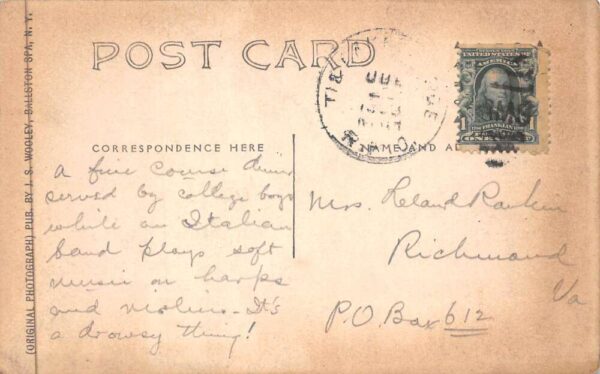 POST CARD
CORRESPONDENCE HERE
NAME AND
a fine course
served by college boys
while an Italian
band plays soft
music on harps
and violins - It's
a drowsy thing!
Mrs. Leland Rankin
Richmond
Va
P.O. Box 612
(ORIGINAL PHOTOGRAPH) PUB. BY J. S. WOOLEY, BALLSTON SPA, N. Y.
AMERICA
FRANKLIN
ONE
R.P.O.